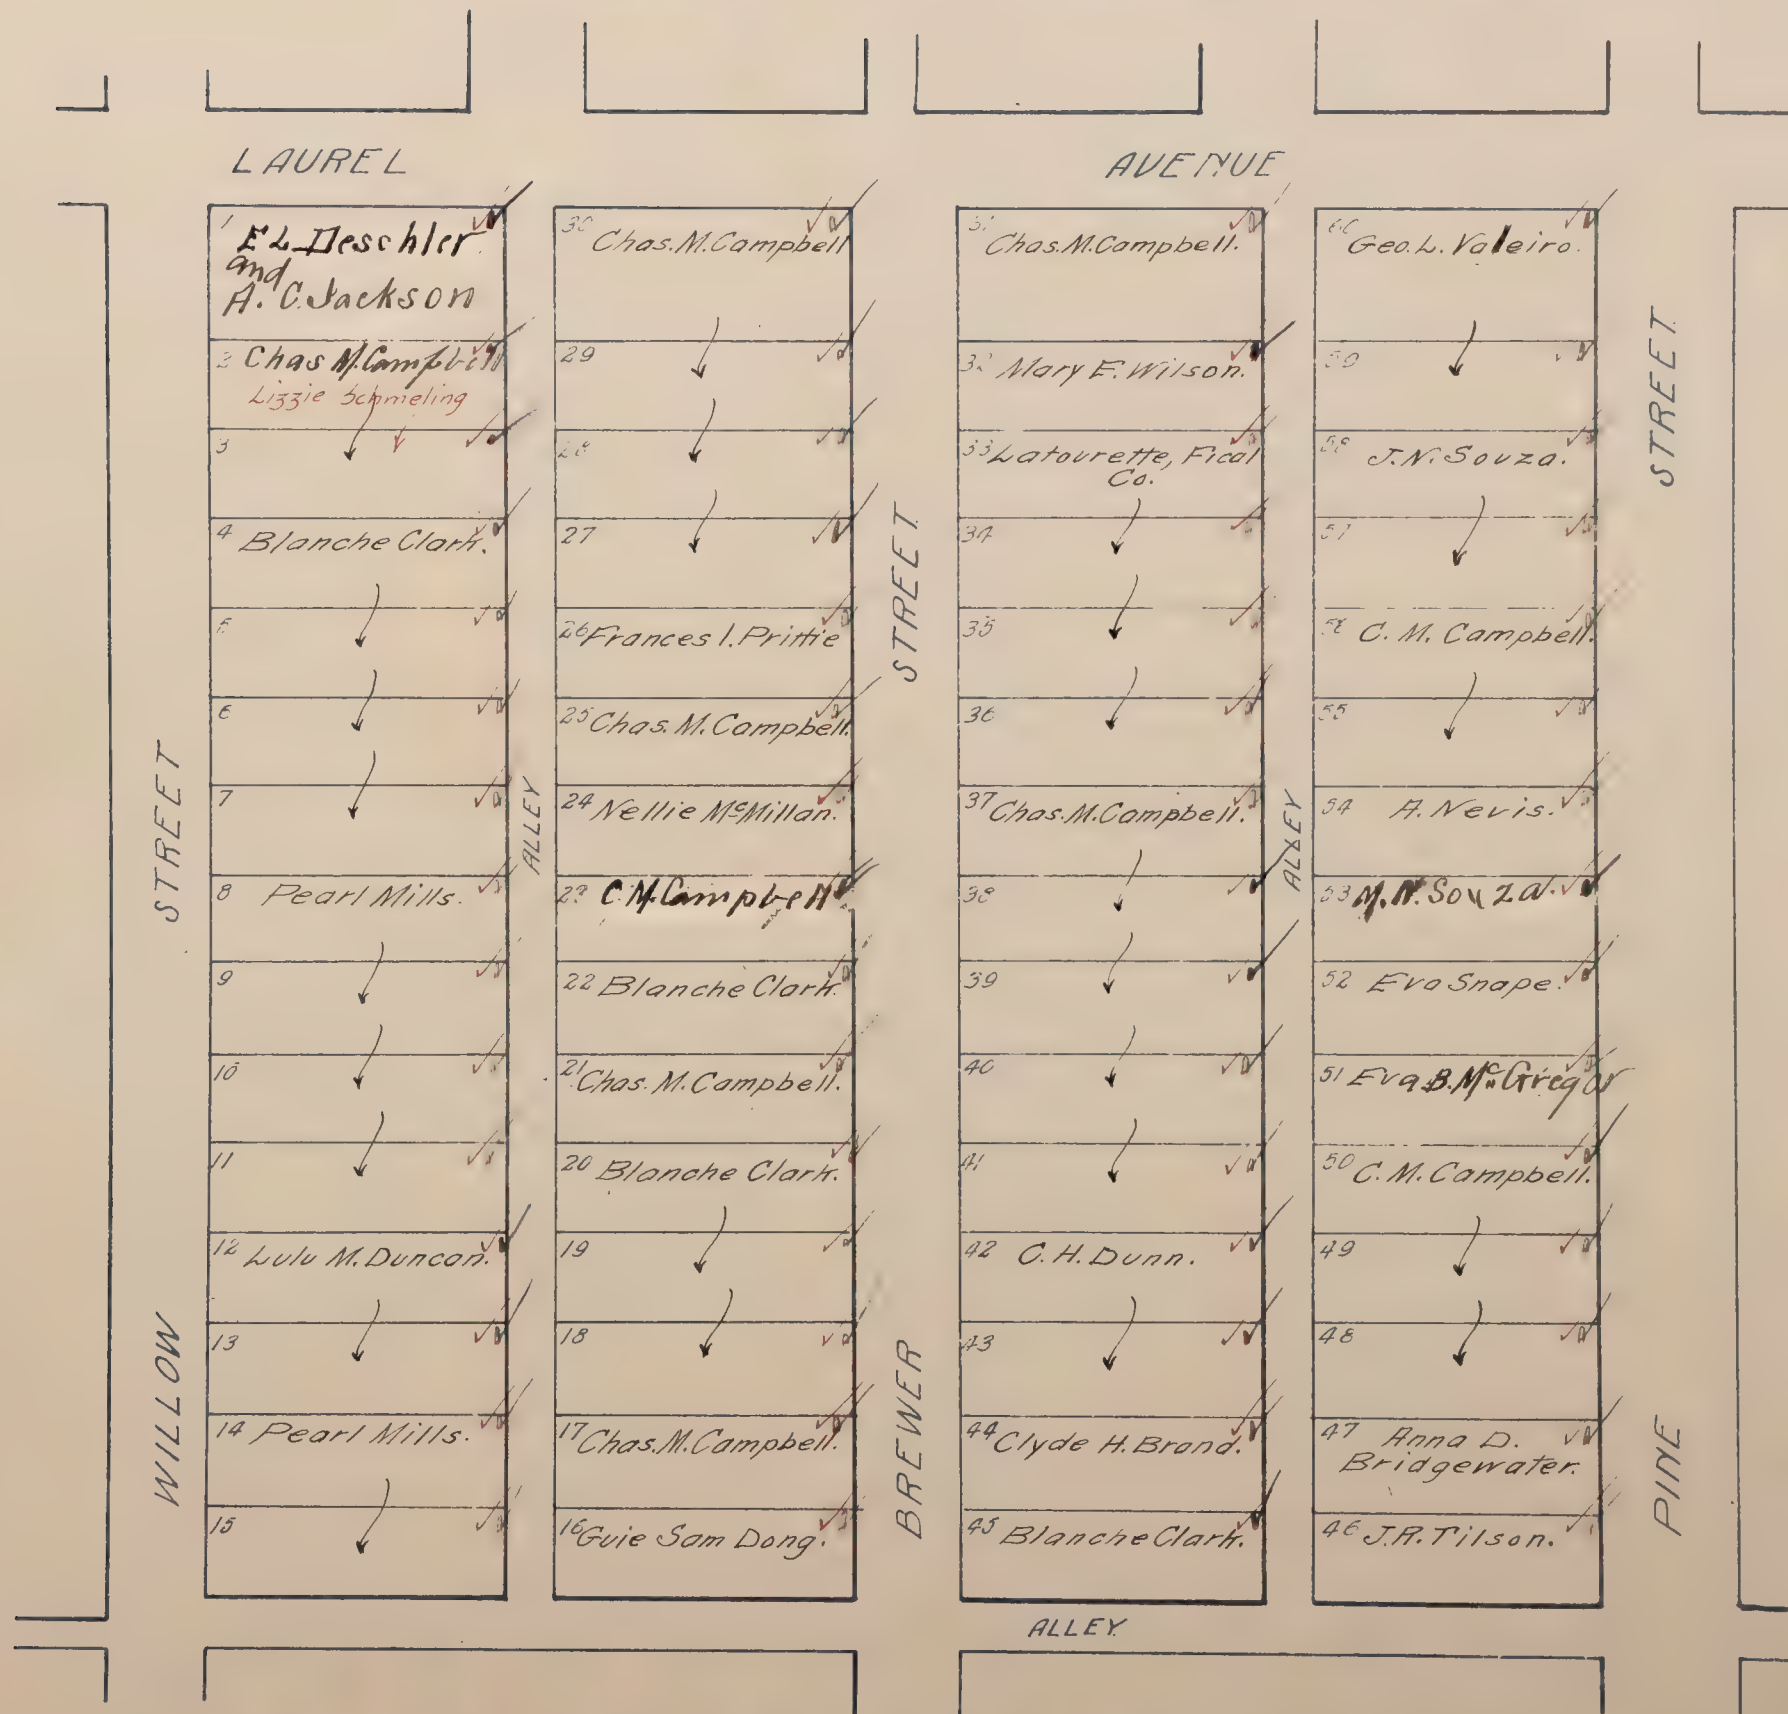 LAUREL AVENUE
1
E L Deschler
and
A. C. Jackson
2 Chas M. Campbell
Lizzie Schmeling
3
4 Blanche Clark.
5
6
7
8 Pearl Mills.
9
10
11
12 Lulu M. Duncan.
13
14 Pearl Mills.
15
30
Chas. M. Campbell
29
28
27
26 Frances I. Prittie
25 Chas. M. Campbell.
24 Nellie McMillan.
23 C. M. Campbell
22 Blanche Clark.
21 Chas. M. Campbell.
20 Blanche Clark.
19
18
17 Chas. M. Campbell.
16 Guie Sam Dong.
31
Chas. M. Campbell.
32 Mary E. Wilson.
33 Latourette, Fical
Co.
34
35
36
37 Chas. M. Campbell.
38
39
40
41
42 C. H. Dunn.
43
44 Clyde H. Brand.
45 Blanche Clark.
60
Geo. L. Valeiro.
59
58 J. N. Souza.
57
56 C. M. Campbell.
55
54 A. Nevis.
53 M. N. Souza.
52 Eva Snape.
51 Eva B. McGregor
50 C. M. Campbell.
49
48
47 Anna D.
Bridgewater.
46 J. R. Tilson.
WILLOW STREET
ALLEY
BREWER STREET
ALLEY
PINE STREET
ALLEY